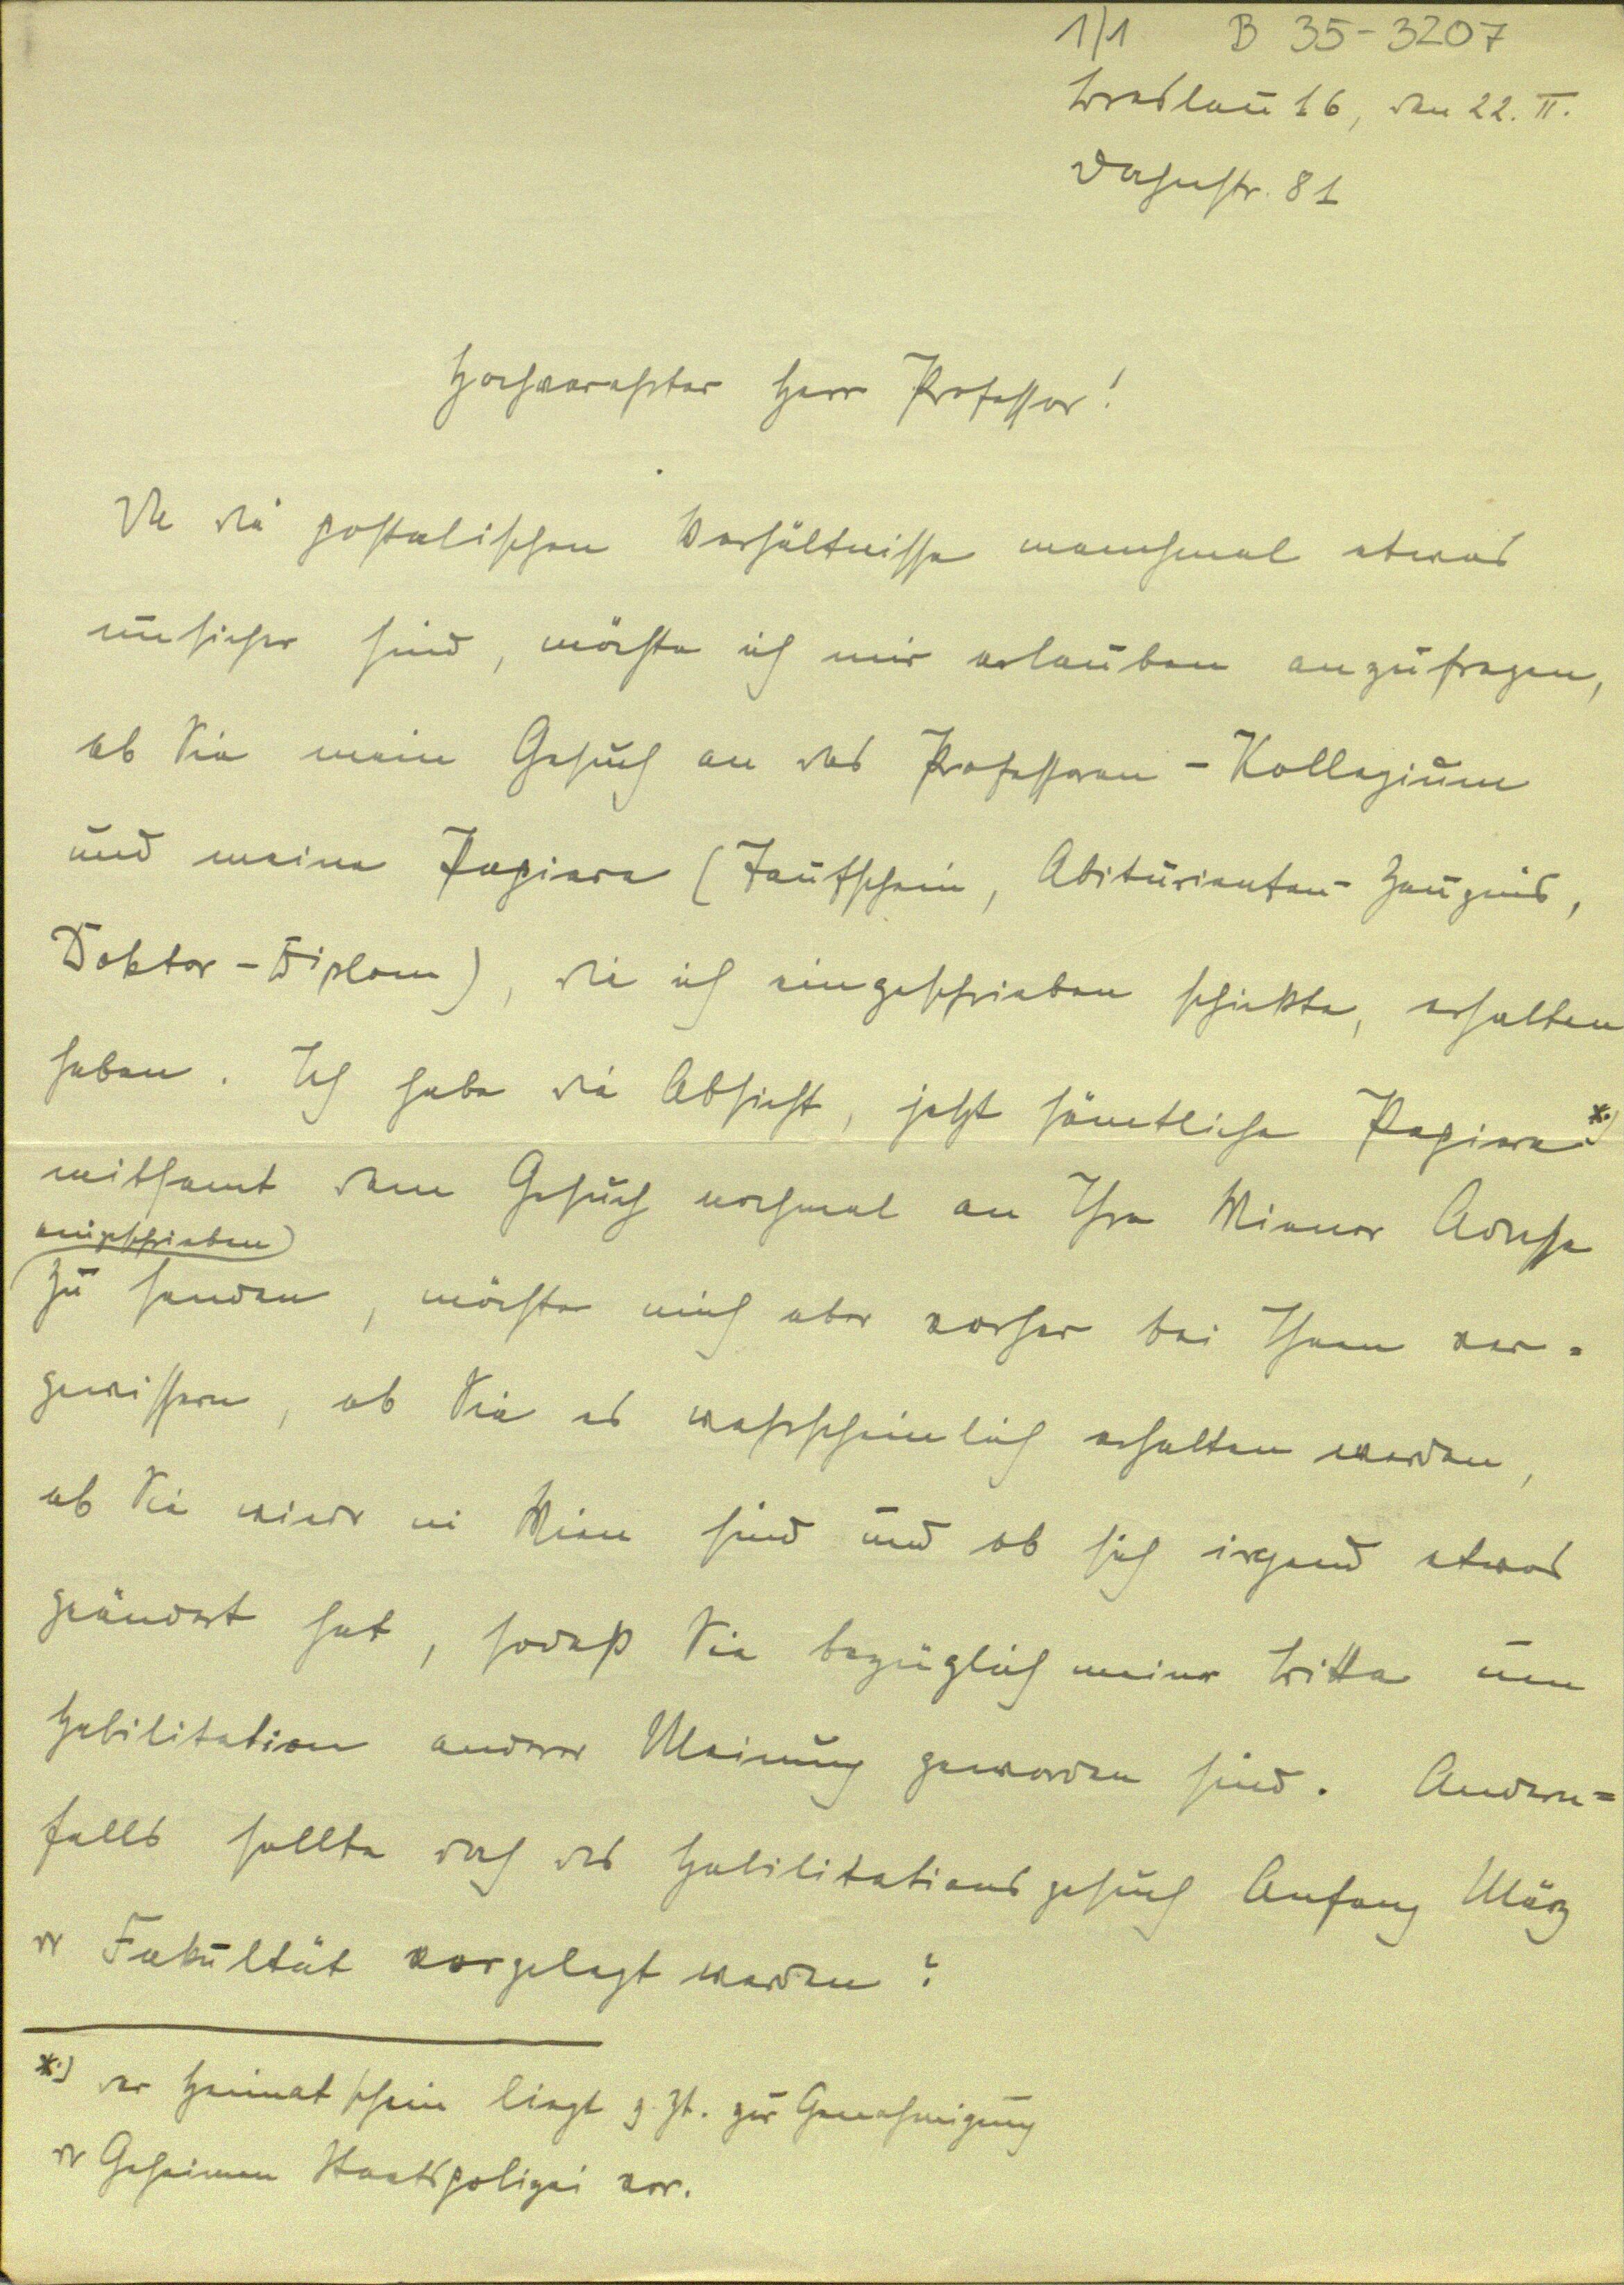 1/1 B 35-3207
Breslau 16, den 22. II.
Dahnstr. 81
Hochverehrter Herr Professor!
Da die postalischen Verhältnisse manchmal etwas
unsicher sind, möchte ich mir erlauben anzufragen,
ob Sie mein Gesuch an das Professoren-Kollegium
und meine Papiere (Taufschein, Abiturienten-Zeugnis,
Doktor-Diplom), die ich eingeschrieben schickte, erhalten
haben. Ich habe die Absicht, jetzt sämtliche Papiere *)
mitsamt dem Gesuch nochmal an Ihre Wiener Adresse
eingeschrieben
zu senden, möchte mich aber vorher bei Ihnen ver=
gewissern, ob Sie es wahrscheinlich erhalten werden,
ob Sie wieder in Wien sind und ob sich irgend etwas
geändert hat, sodaß Sie bezüglich meiner Bitte um
Habilitation anderer Meinung geworden sind. Andern=
falls sollte doch das Habilitationsgesuch Anfang März
der Fakultät vorgelegt werden?
*) der Heimatschein liegt z. Zt. zur Genehmigung
der Geheimen Staatspolizei vor.